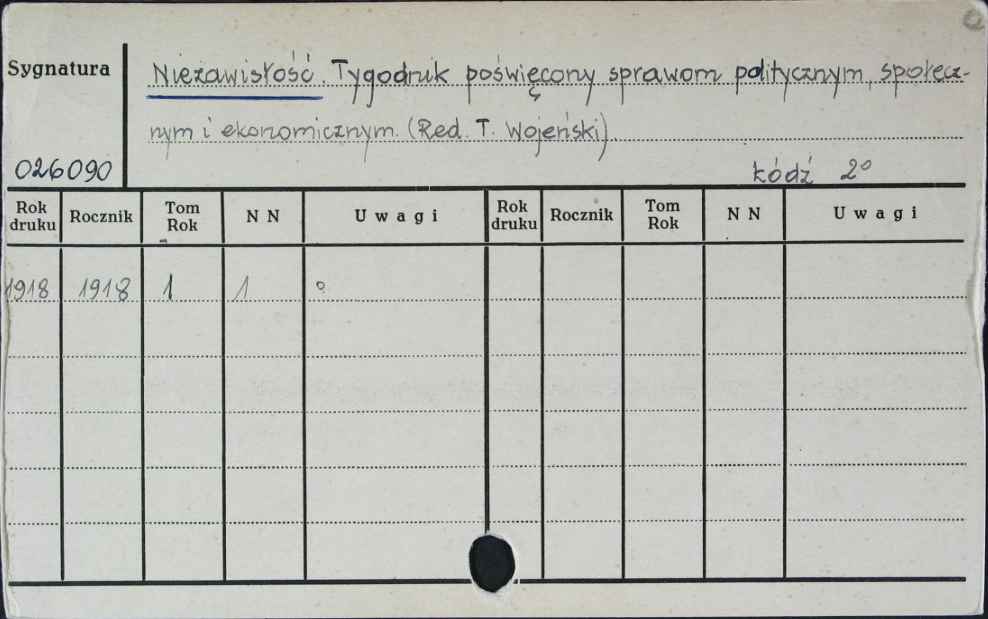 Sygnatura
Niezawisłość. Tygodnik poświęcony sprawom politycznym, społecz-
nym i ekonomicznym. (Red. T. Wojeński)
026090
Łódź 2°
Rok druku Rocznik Tom Rok N N Uwagi Rok druku Rocznik Tom Rok N N Uwagi
1918 1918 1 1